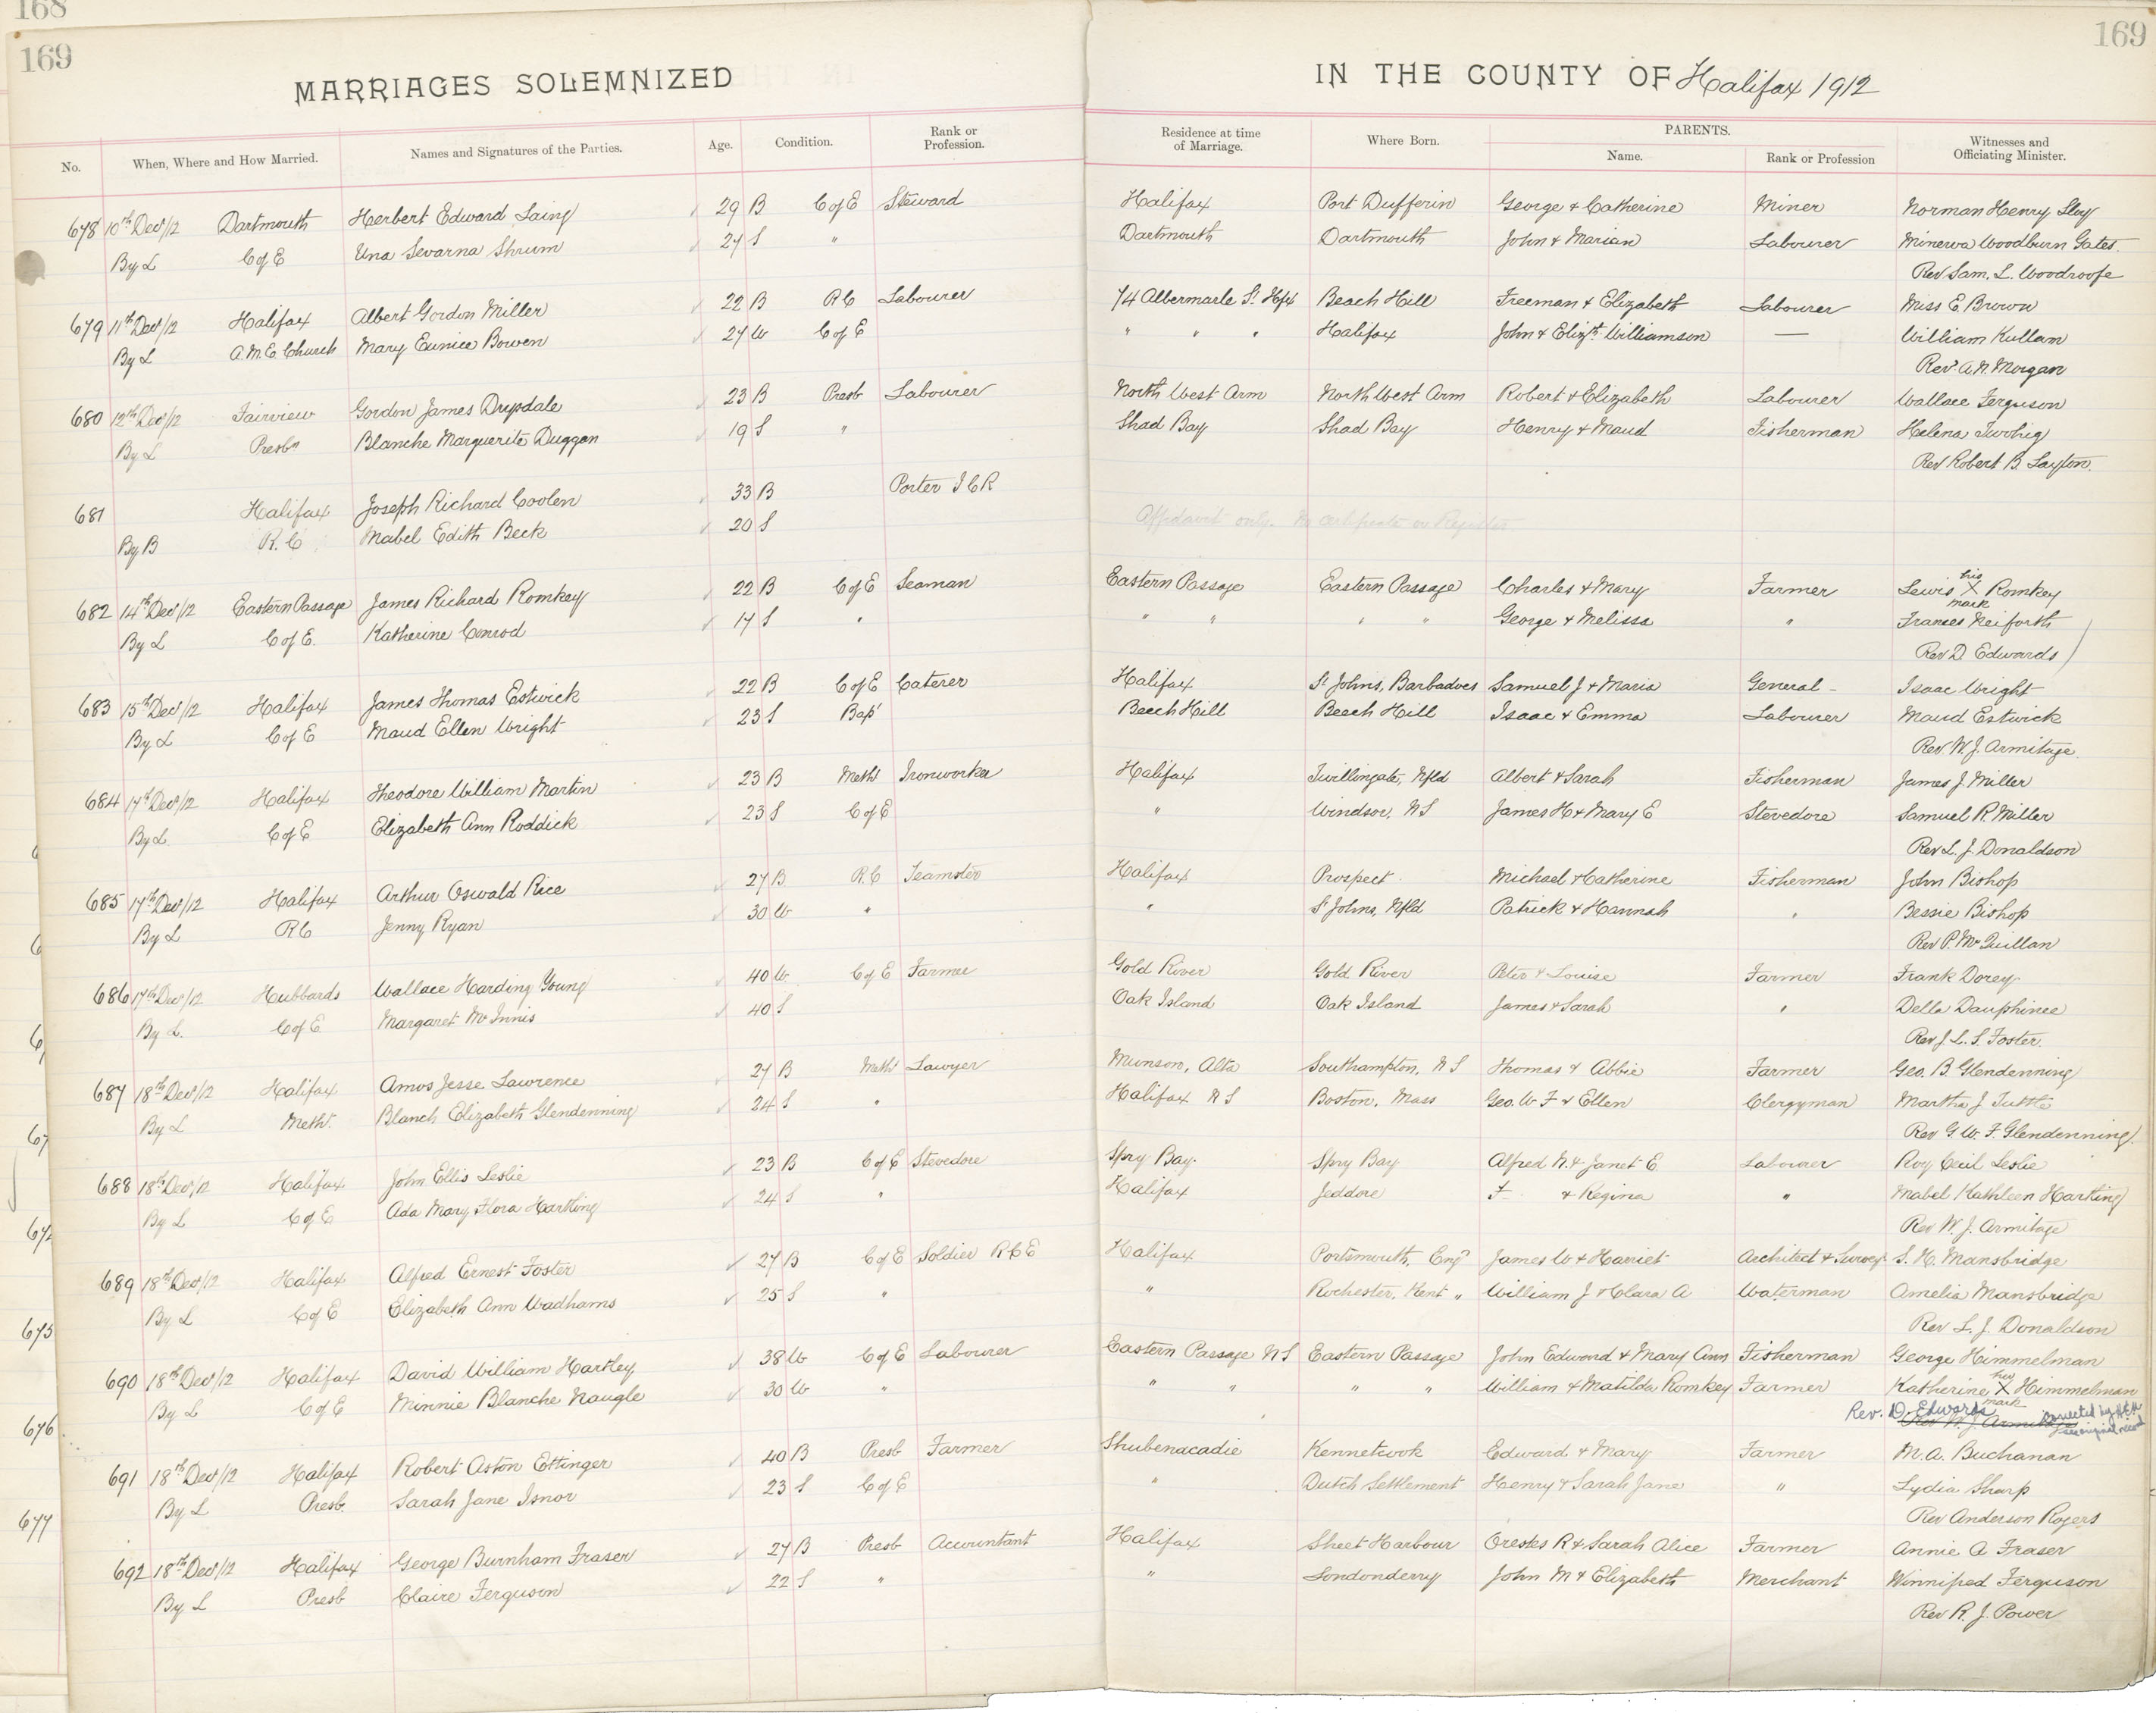 168
169
169
MARRIAGES SOLEMNIZED IN THE COUNTY OF Halifax 1912
No. When, Where and How Married. Names and Signatures of the Parties. Age. Condition. Rank or Profession. Residence at time of Marriage. Where Born. PARENTS. Name. Rank or Profession Witnesses and Officiating Minister.
678 10th Dec/12 Dartmouth Herbert Edward Laing 29 B C of E Steward Halifax Port Dufferin George & Catherine Miner Norman Henry Sloy
By L C of E Una Sevarna Shrum 24 S " Dartmouth Dartmouth John & Marian Labourer Minerva Woodburn Gates
Rev Sam. L. Woodroofe
679 11th Dec/12 Halifax Albert Gordon Miller 22 B RC Labourer 74 Albermarle St. Hfx Beach Hill Freeman & Elizabeth Labourer Miss E. Brown
By L A.M.E. Church Mary Eunice Bowen 27 W C of E " " " Halifax John & Elizth Williamson — William Kullam
Rev. A. N. Morgan
680 12th Dec/12 Fairview Gordon James Drysdale 23 B Presb Labourer North West Arm North West Arm Robert & Elizabeth Labourer Wallace Ferguson
By L Presbn Blanche Marguerite Duggan 19 S " Shad Bay Shad Bay Henry & Maud Fisherman Helena Twohig
Rev Robert B. Layton.
681 Halifax Joseph Richard Coolen 33 B Porter I C R
By B R.C. Mabel Edith Beck 20 S Affidavit only. No certificate or Register
682 14th Dec/12 Eastern Passage James Richard Romkey 22 B C of E Seaman Eastern Passage Eastern Passage Charles & Mary Farmer Lewis his X mark Romkey
By L C of E. Katherine Conrod 17 S " " " " " George & Melissa " Frances Neiforth
Rev D. Edwards
683 15th Dec/12 Halifax James Thomas Estwick 22 B C of E Caterer Halifax St Johns, Barbadoes Samuel J & Maria General - Isaac Wright
By L C of E Maud Ellen Wright 23 S Bapt Beech Hill Beech Hill Isaac & Emma Labourer Maud Estwick
Rev. W. J. Armitage
684 17th Dec/12 Halifax Theodore William Martin 23 B Meth Ironworker Halifax Twillingate, Nfld Albert & Sarah Fisherman James J. Miller
By L. C of E Elizabeth Ann Roddick 23 S C of E " Windsor, NS James H & Mary E Stevedore Samuel R. Miller
Rev L. J. Donaldson
685 17th Dec/12 Halifax Arthur Oswald Rice 27 B R.C Teamster Halifax Prospect Michael & Catherine Fisherman John Bishop
By L RC Jenny Ryan 30 W " " St Johns, Nfld Patrick & Hannah " Bessie Bishop
Rev P. McQuillan
686 17th Dec/12 Hubbards Wallace Harding Young 40 W. C of E Farmer Gold River Gold River Peter & Louise Farmer Frank Dorey
By L. C of E Margaret McInnis 40 S Oak Island Oak Island James & Sarah " Della Dauphinee
Rev J. L. S. Foster.
687 18th Dec/12 Halifax Amos Jesse Lawrence 27 B Meth Lawyer Munson, Alta Southampton, NS Thomas & Abbie Farmer Geo. B. Glendenning
By L Meth. Blanch Elizabeth Glendenning 24 S " Halifax NS Boston, Mass Geo. W F & Ellen Clergyman Martha J Tuttle
Rev G. W. F. Glendenning
688 18th Dec/12 Halifax John Ellis Leslie 23 B C of E Stevedore Spry Bay. Spry Bay Alfred N. & Janet E. Labourer Roy Cecil Leslie
By L C of E Ada Mary Flora Hartling 24 S " Halifax Jeddore F & Regina " Mabel Kathleen Hartling
Rev W. J. Armitage
689 18th Dec/12 Halifax Alfred Ernest Foster 27 B C of E Soldier R C E Halifax Portsmouth, Engd James W & Harriet Architect & Survey S. H. Mansbridge
By L C of E Elizabeth Ann Wadhams 25 S " " Rochester, Kent " William J & Clara A Waterman Amelia Mansbridge
Rev L. J. Donaldson
690 18th Dec/12 Halifax David William Hartley 38 W C of E Labourer Eastern Passage NS Eastern Passage John Edward & Mary Ann Fisherman George Himmelman
By L C of E Minnie Blanche Naugle 30 W " " " " " William & Matilda Romkey Farmer Katherine her X mark Himmelman
Rev. D. Edwards Rev W. J. Armitage corrected by see original record
691 18th Dec/12 Halifax Robert Aston Ettinger 40 B Presb Farmer Shubenacadie Kennetcook Edward & Mary Farmer M. A. Buchanan
By L Presb. Sarah Jane Isnor 23 S C of E " Dutch Settlement Henry & Sarah Jane " Lydia Sharp
Rev Anderson Rogers
692 18th Dec/12 Halifax George Burnham Fraser 27 B Presb Accountant Halifax Sheet Harbour Orestes R & Sarah Alice Farmer Annie A Fraser
By L Presb Claire Ferguson 22 S " " Londonderry John M & Elizabeth Merchant Winnifred Ferguson
Rev R. J. Power
675
676
677